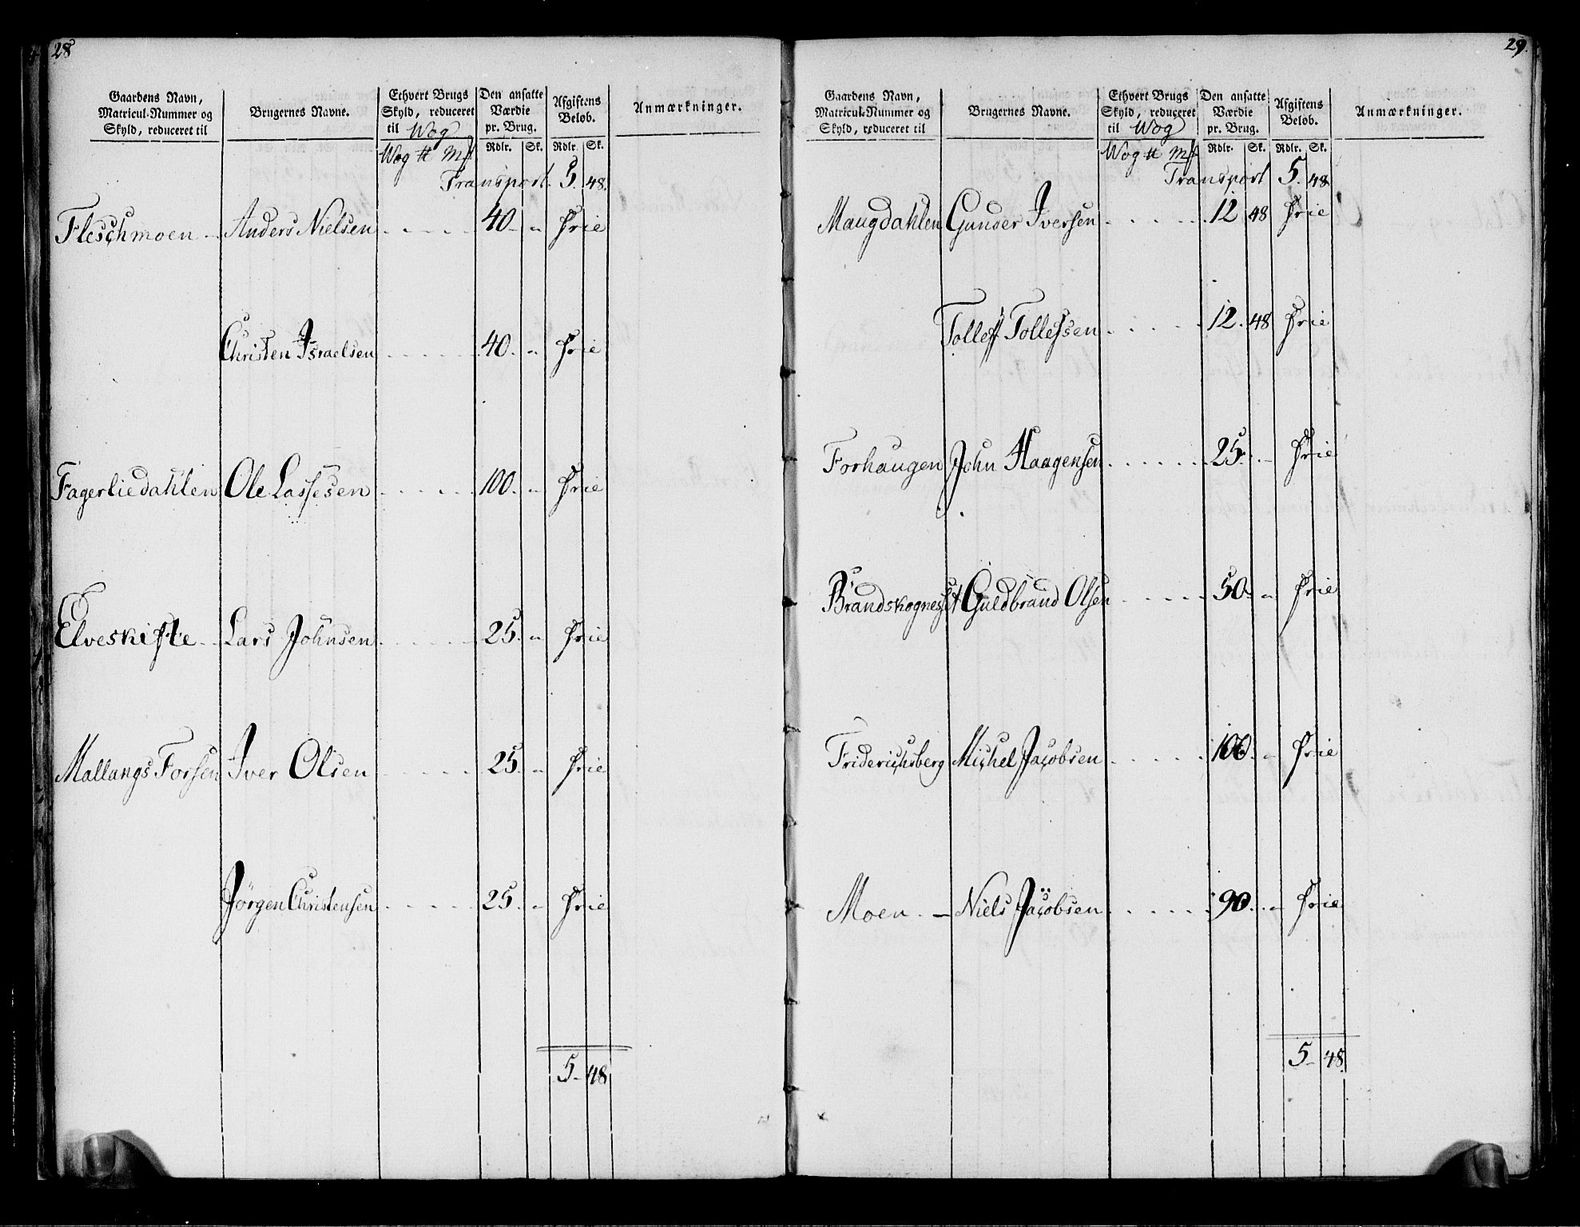 28
Gaardens Navn, Matricul-Nummer og Skyld, reduceret til
Brugernes Navne.
Ethvert Brugs Skyld, reduceret til Wog
Den ansatte Værdie pr. Brug.
Afgiftens Beløb.
Anmærkninger.
Wog ℔ Mk Rdlr. Sk. Rdlr. Sk.
Transport. 5. 48.
Fleschmoen Anders Nielsen 40 - Frie
Christen Israelsen 40. - Frie
Fagerliedahlen Ole Lassesen 100. - Frie
Elveskifte Lars Johnsen 25. - Frie
Mallangs Forsen Iver Olsen 25. - Frie
Jörgen Christensen 25. - Frie
5 - 48
29.
Gaardens Navn, Matricul-Nummer og Skyld, reduceret til
Brugernes Navne.
Ethvert Brugs Skyld, reduceret til Wog
Den ansatte Værdie pr. Brug.
Afgiftens Beløb.
Anmærkninger.
Wog ℔ Mk Rdlr. Sk. Rdlr. Sk.
Transport 5. 48
Maugdahlen Gunder Iversen 12 48 Frie
Tollef Tollefsen 12. 48 Frie
Forhaugen John Haagensen 25. - Frie
Brandskognesset Guldbrand Olsen 50. - Frie
Friderichsberg Michel Jacobsen 100. - Frie
Moen - Niels Jacobsen 90. - Frie
5 - 48.